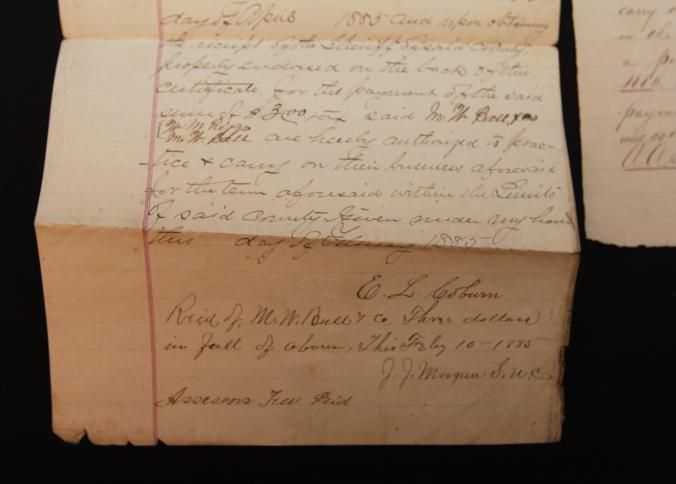 day of April 1885 and upon obtaining
the receipt of the Sheriff of said County
properly endorsed on the back of this
certificate, for the payment of the said
sum of $3.00 tax said M. W. Bull & co
W. M.
M. W. Bull are hereby authorized to prac-
tice & carry on their business aforesaid
for the term aforesaid within the Limits
of said County Given under my hand
this day of February 1885
E. L. Coburn
Recd of M. W. Bull & Co Three dollars
in full of above. This Feby 10 - 1885
J. J. Morgan S. U. C.
Assessors Fee Paid
carry o
in the
a
paym